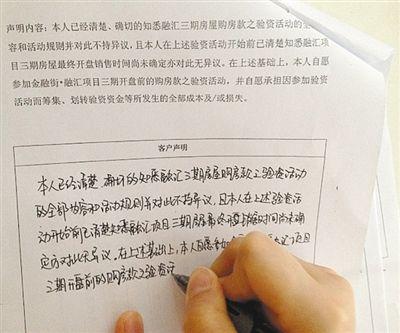 声明内容：本人已经清楚、确切的知悉融汇三期房屋购房款之验资活动的全
容和活动规则并对此不持异议，且本人在上述验资活动开始前已清楚知悉融汇
目三期房屋最终开盘销售时间尚未确定亦对此无异议。在上述基础上，本人自愿
参加金融街·融汇项目三期开盘前的购房款之验资活动，并自愿承担因参加验资
活动而筹集、划转验资资金等所发生的全部成本及/或损失。
客户声明
本人已经清楚、确切的知悉融汇三期房屋购房款之验资活动
的全部内容和活动规则并对此不持异议，且本人在上述验资活
动开始前已清楚知悉融汇项目三期房屋最终开盘销售时间尚未确
定亦对此无异议。在上述基础上，本人自愿参加金
汇项目
三期开盘前的购房款之验资活